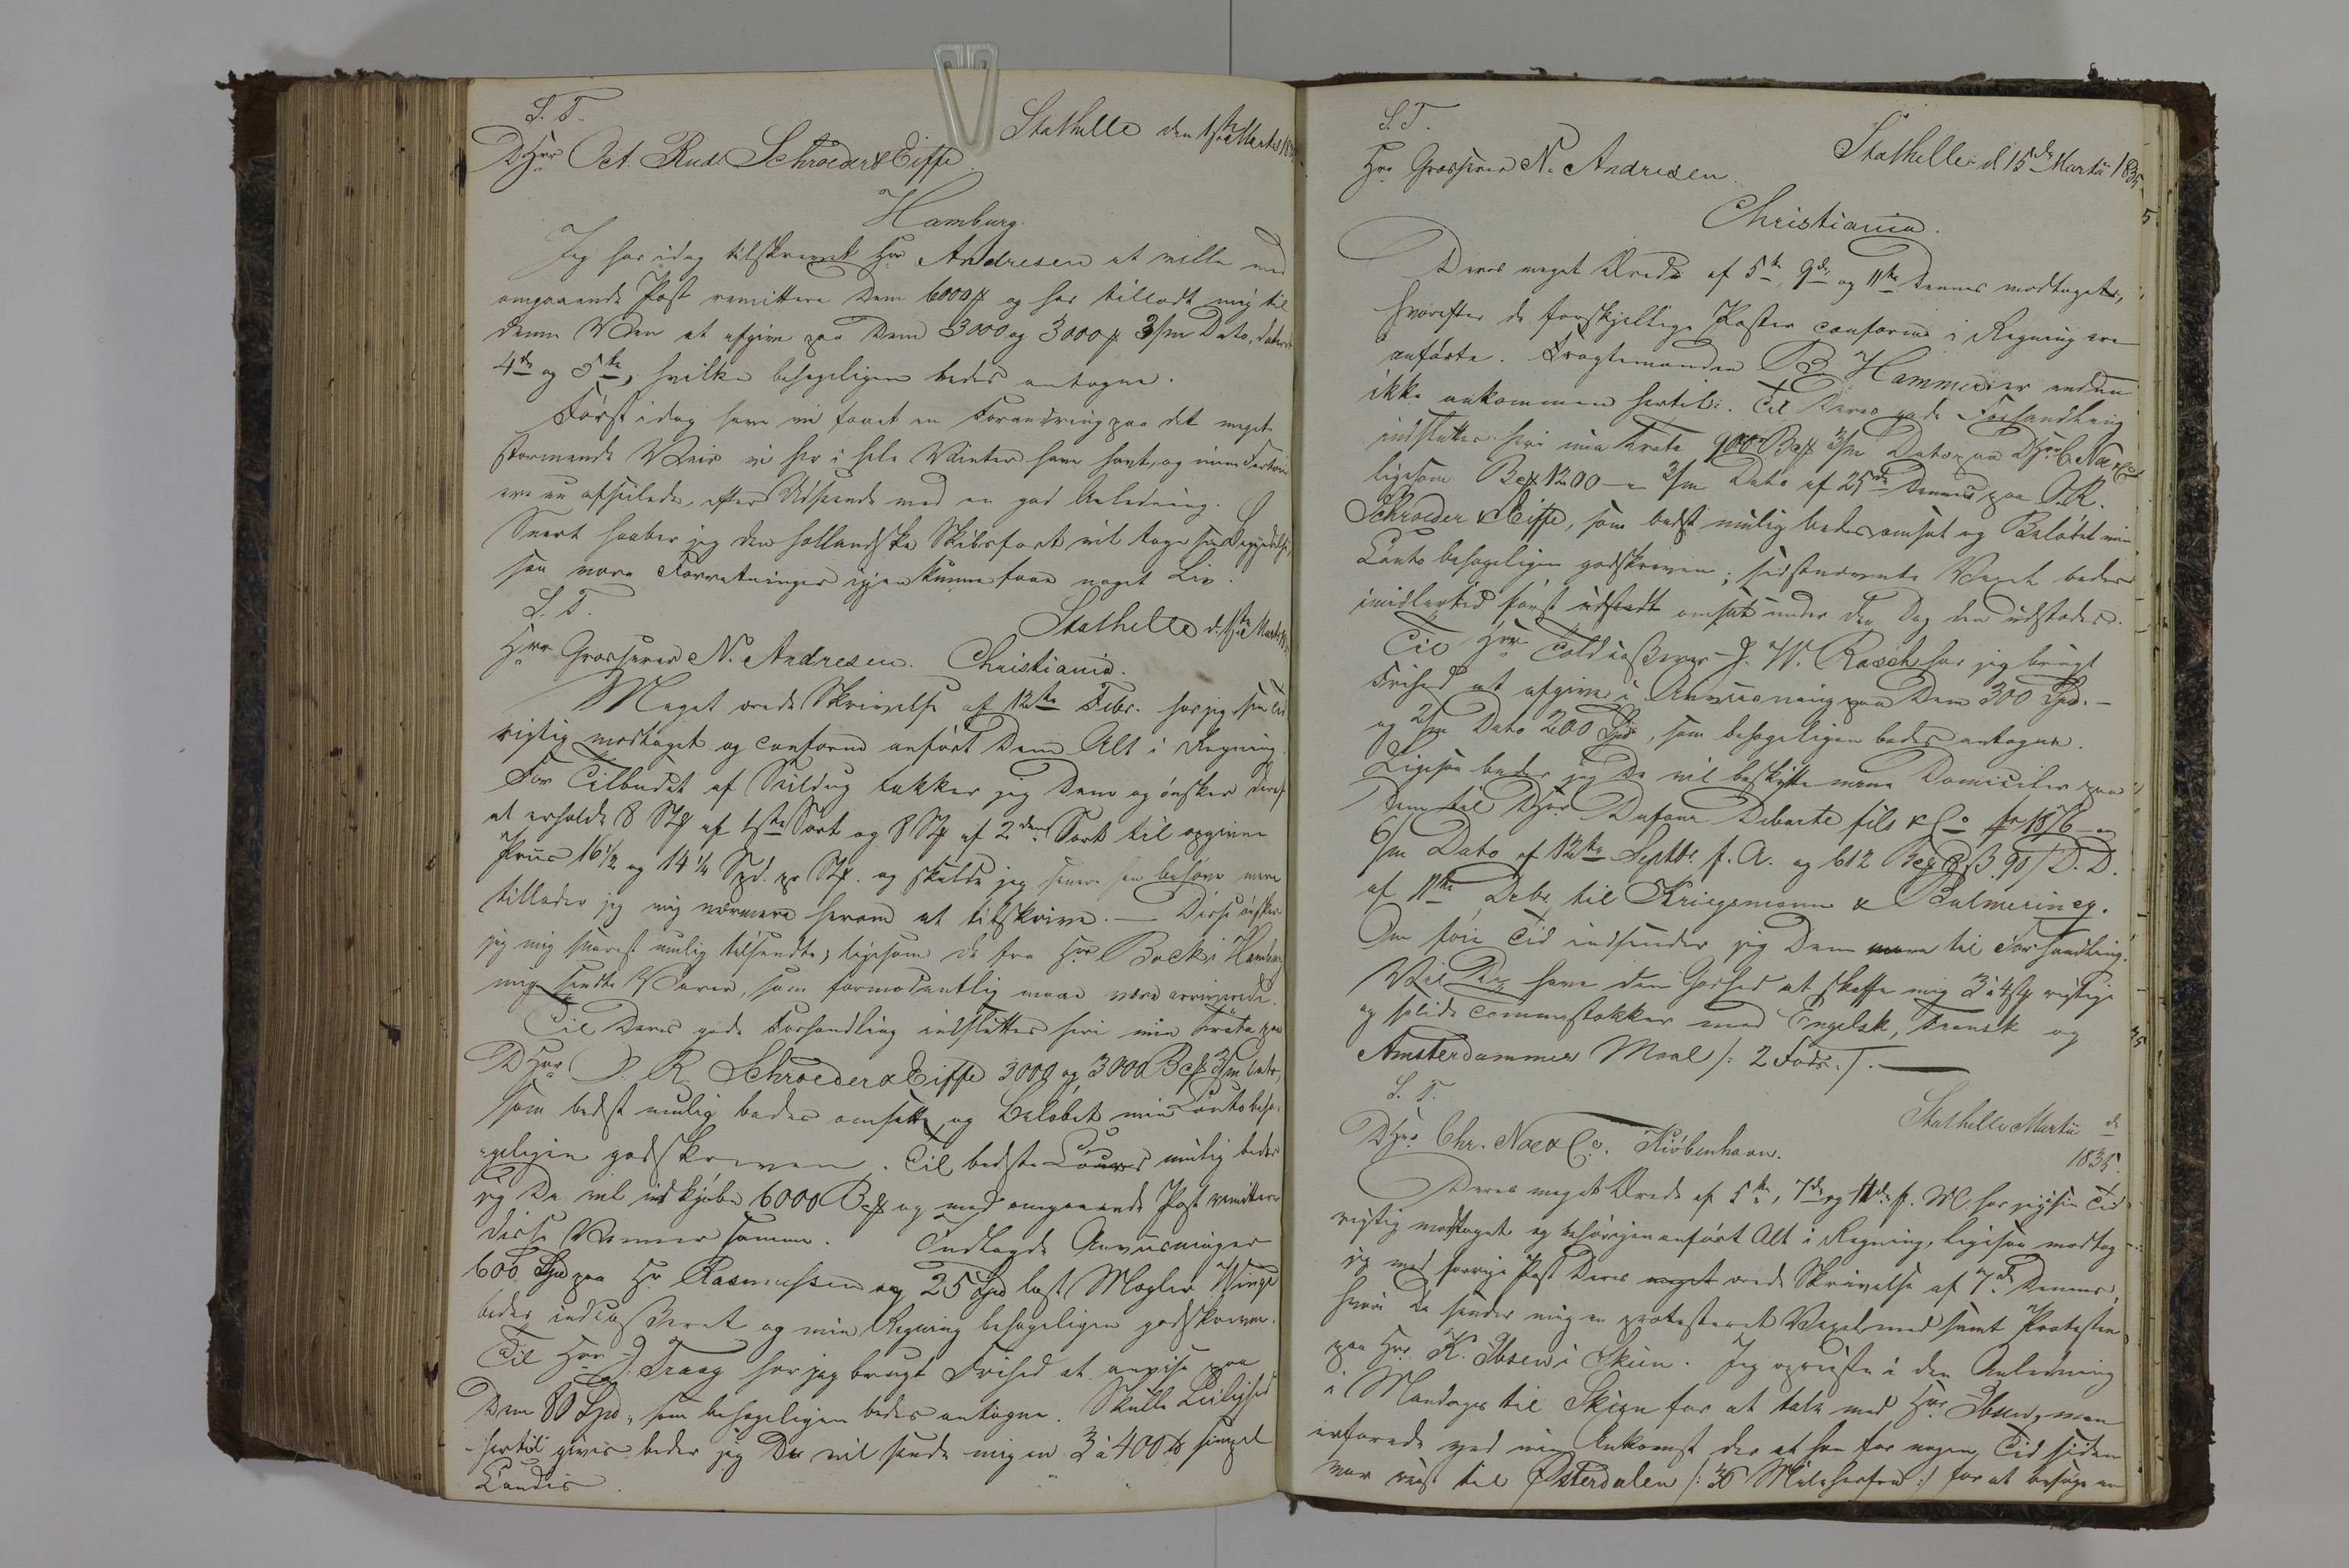 S. T.
Stathelle den 1ste Marts 183
DHrr Oct. Rud. Schroeder & Eiffe
Hamburg.
Jeg har idag tilskrevet Hrr Andresen at ville med
omgaaende Post remittere Dem 6000 og har tilladt mig til
denne Ven at afgive paa Dem 3000 og 3000 3/m Dato, dateret
4de og 5te, hvilke behageligen bedes antagne.
Først idag have vi faaet en Forandring paa det meget
stormende Veir vi her i hele Vinter have havt, og mine
ere nu afseilede, efter Udseende med en god Anledning.
Snart haaber jeg den hollandske Skibsfart vil tage sin Begyndelse,
saa vore Forretninger igjen kunne faae noget Liv.
S. T.
Stathelle d. 1ste Marts
Hrr Grosserer N. Andresen. Christiania.
Meget ærede Skrivelse af 12te Febr. har jeg sin Tid
rigtig modtaget og conform anført Dem Alt i Regning.
For Tilbudet af Seildug takker jeg Dem og ønsker deraf
at erholde 8 St af 1ste Sort og 8 St af 2den Sort til opgivne
Priis 16 1/2 og 14 1/4 Spd. pr St. og skulde jeg senere hen behøve mere
tillader jeg mig nærmere herom at tilskrive. — Disse ønsker
jeg mig snarest mulig tilsendte, ligesom de fra Hrr Bock i Hamburg
mig sendte Varer, som formodentlig maae være arriverede.
Til Deres gode Forhandling indsluttes heri min Trata paa
DHrr O. R. Schroeder & Eiffe 3000 og 3000 Bc 3/m Dato,
som bedst mulig bedes omsatte, og Beløbet min Conto beha-
geligen godskreven. Til bedste Cours mulig beder
jeg De vil indkjøbe 6000 Bc og med omgaaende Post remittere
disse Venner samme. Indlagde Anviisninger
600 Spd paa Hr Rasmussen og 25 Spd Mægler Winge
bedes indcasseret og min Regning behageligen godskreven.
Til Hrr J. Traag har jeg brugt Frihed at anvise paa
Dem 80 Spd, som behageligen bedes antagne. Skulle Leilighed
hertil gives beder jeg De vil sende mig en 3 à 400 simpel
Candis.
S. T.
Stathelle d 15de Martii 1835
Hrr Grosserer N. Andresen.
Christiania.
Deres meget Ærede af 5te, 9de og 11te Dennes modtaget,
hvorefter de forskjellige Poster conforme i Regning ere
anførte. Fragtemanden B. Hammer er endnu
ikke ankommen hertil. Til Deres gode Forhandling
indsluttes heri min Trata 900 Bc 3/m Dato paa DHrr C. Noe & Co
ligesom Bc 1200 — 3/m Dato af 25de Dennes paa O. R.
Schroeder & Eiffe, som bedst mulig bedes omsat og Beløbet min
Conto behageligen godskreven; sidstnævnte Vexel bedes
imidlertid først udstedt omsat under den Dag den udstedes.
Til Hrr Toldcasserer J. W. Rasch har jeg brugt
Frihed at afgive i Anviisning paa Dem 300 Spd. —
og 2/m Dato 200 Spd, som behageligen bedes antagne.
Ligesaa beder jeg De vil beskytte mine Domiciler paa
Dem til DHrr Dufour Debarte fils & Co
6/m Dato af 12te Septbr. f. A. og 612 Bc 8 ß. 90/ D. D.
af 11te Debr. til Kriegsmann & Bulmerincq.
Om føie Tid indsender jeg Dem mere til Forhandling.
Vil De have den Godhed at skaffe mig 3 à 4 St rigtige
og solide Tommestokker med Engelsk, Fransk og
Amsterdammer Maal /: 2 Fods :/.
S. T.
Stathelle Martii d
1835.
DHrr Chr. Noe & Co. Kiøbenhavn.
Deres meget Ærede af 5te, 7de og f. M. har jeg i sin Tid
rigtig modtaget og behørigen anført Alt i Regning, ligesaa modtog
jeg med forrige Post Deres meget ærede Skrivelse af 7de Dennes,
hvori De sender mig en protesteret Vexel med samt Protesten
paa Hrr K. Ibsen i Skien. Jeg opreiste i den Anledning
i Mandags til Skien for at tale med Hrr Ibsen, men
erfarede ved min Ankomst der at han for nogen Tid siden
var reist til Østerdalen /: 36 Mile herfra :/ for at besøge en